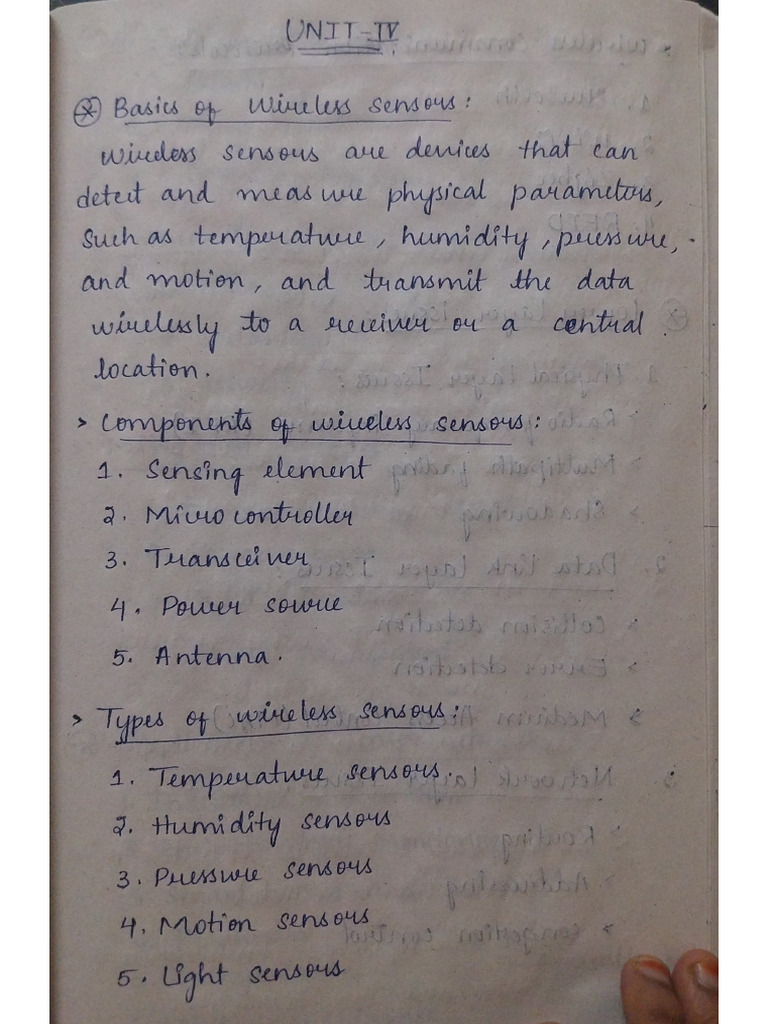 UNIT-IV
Basics of Wireless Sensors:
wireless sensors are devices that can
detect and measure physical parameters,
such as temperature, humidity, pressure,
and motion, and transmit the data
wirelessly to a receiver or a central
location.
> Components of wireless sensors:
1. Sensing element
2. Microcontroller
3. Transceiver
4. Power source
5. Antenna.
> Types of wireless sensors:
1. Temperature sensors.
2. Humidity sensors
3. Pressure sensors
4. Motion sensors
5. Light sensors